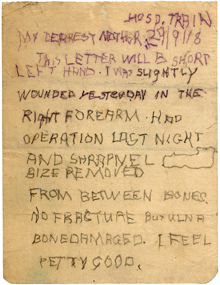 HOSP. TRAIN
MY DEAREST MOTHER, 29/9/18
THIS LETTER WILL B SHORT
LEFT HAND. I WAS SLIGHTLY
WOUNDED YESTERDAY IN THE
RIGHT FOREARM. HAD
OPERATION LAST NIGHT
AND SHRAPNEL
SIZE REMOVED
FROM BETWEEN BONES.
NO FRACTURE BUT ULNA
BONE DAMAGED. I FEEL
PETTY GOOD.